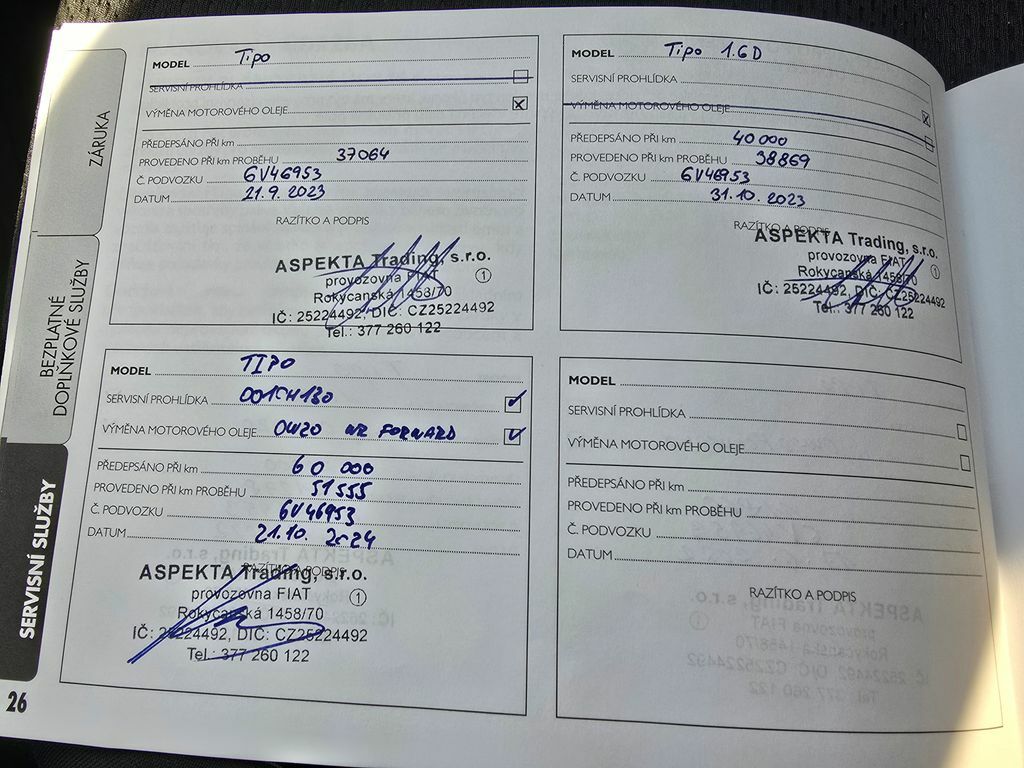 ZÁRUKA
BEZPLATNÉ
DOPLŇKOVÉ SLUŽBY
SERVISNÍ SLUŽBY
26
MODEL Tipo
SERVISNÍ PROHLÍDKA
VÝMĚNA MOTOROVÉHO OLEJE X
PŘEDEPSÁNO PŘI km
PROVEDENO PŘI km PROBĚHU 37064
Č. PODVOZKU 6V46953
DATUM 21.9. 2023
RAZÍTKO A PODPIS
ASPEKTA Trading, s.r.o.
provozovna FIAT 1
Rokycanská 1458/70
IČ: 25224492, DIČ: CZ25224492
Tel.: 377 260 122
MODEL Tipo 1.6D
SERVISNÍ PROHLÍDKA
VÝMĚNA MOTOROVÉHO OLEJE
PŘEDEPSÁNO PŘI km 40 000
PROVEDENO PŘI km PROBĚHU 38869
Č. PODVOZKU 6V46953
DATUM 31.10. 2023
RAZÍTKO A PODPIS
ASPEKTA Trading, s.r.o.
provozovna FIAT 1
Rokycanská 1458/70
IČ: 25224492, DIČ: CZ25224492
Tel.: 377 260 122
MODEL TIPO
SERVISNÍ PROHLÍDKA
VÝMĚNA MOTOROVÉHO OLEJE 0W20 WR FORWARD
PŘEDEPSÁNO PŘI km 60 000
PROVEDENO PŘI km PROBĚHU 51555
Č. PODVOZKU 6V46953
DATUM 21.10. 2024
RAZÍTKO A PODPIS
ASPEKTA Trading, s.r.o.
provozovna FIAT 1
Rokycanská 1458/70
IČ: 25224492, DIČ: CZ25224492
Tel.: 377 260 122
MODEL
SERVISNÍ PROHLÍDKA
VÝMĚNA MOTOROVÉHO OLEJE
PŘEDEPSÁNO PŘI km
PROVEDENO PŘI km PROBĚHU
Č. PODVOZKU
DATUM
RAZÍTKO A PODPIS